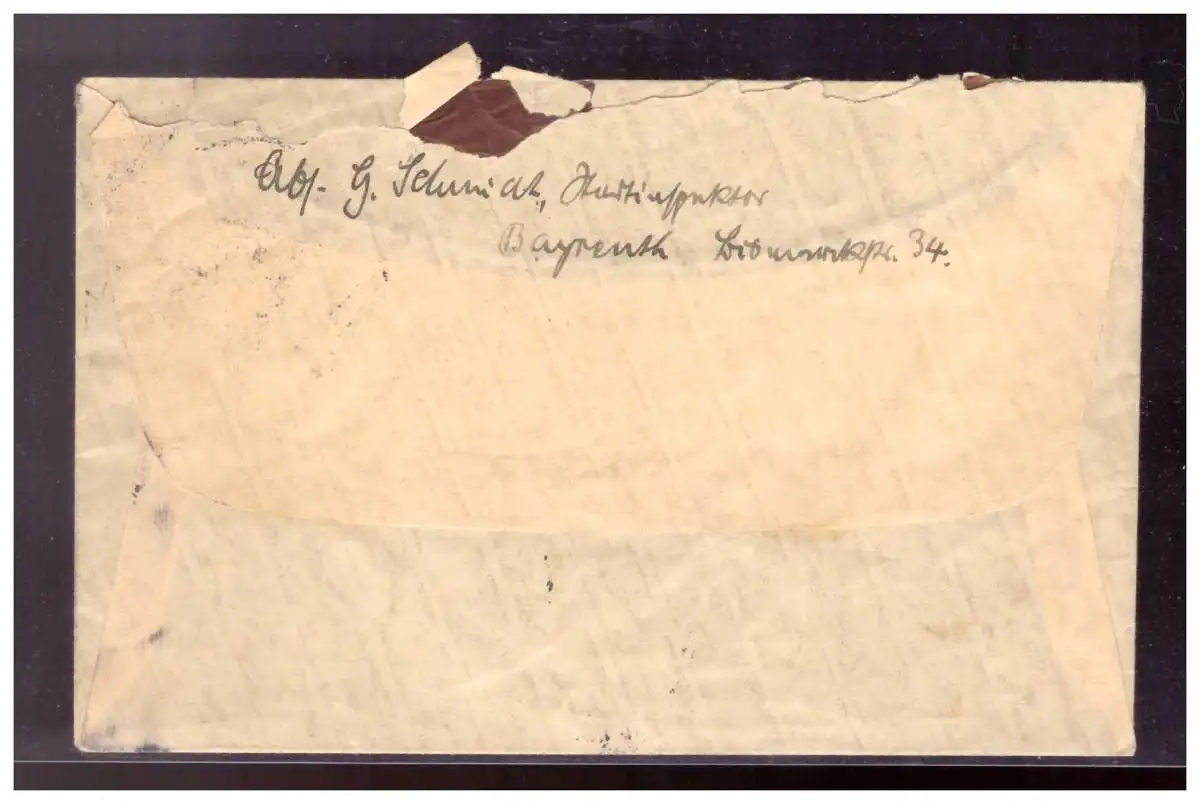 Abs. G. Schmidt, Stadtinspektor
Bayreuth Bismarckstr. 34.